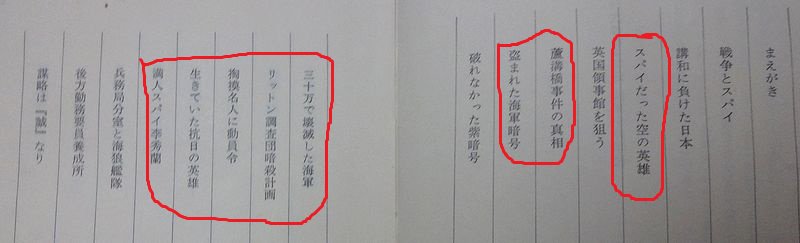 まえがき
戦争とスパイ
講和に負けた日本
スパイだった空の英雄
英国領事館を狙う
蘆溝橋事件の真相
盗まれた海軍暗号
破れなかった紫暗号
三十万で壊滅した海軍
リットン調査団暗殺計画
掏摸名人に動員令
生きていた抗日の英雄
満人スパイ李秀蘭
兵務局分室と海狼艦隊
後方勤務要員養成所
謀略は『誠』なり